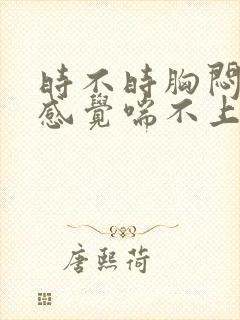 时不时胸悶
感覺喘不上
唐熙荷